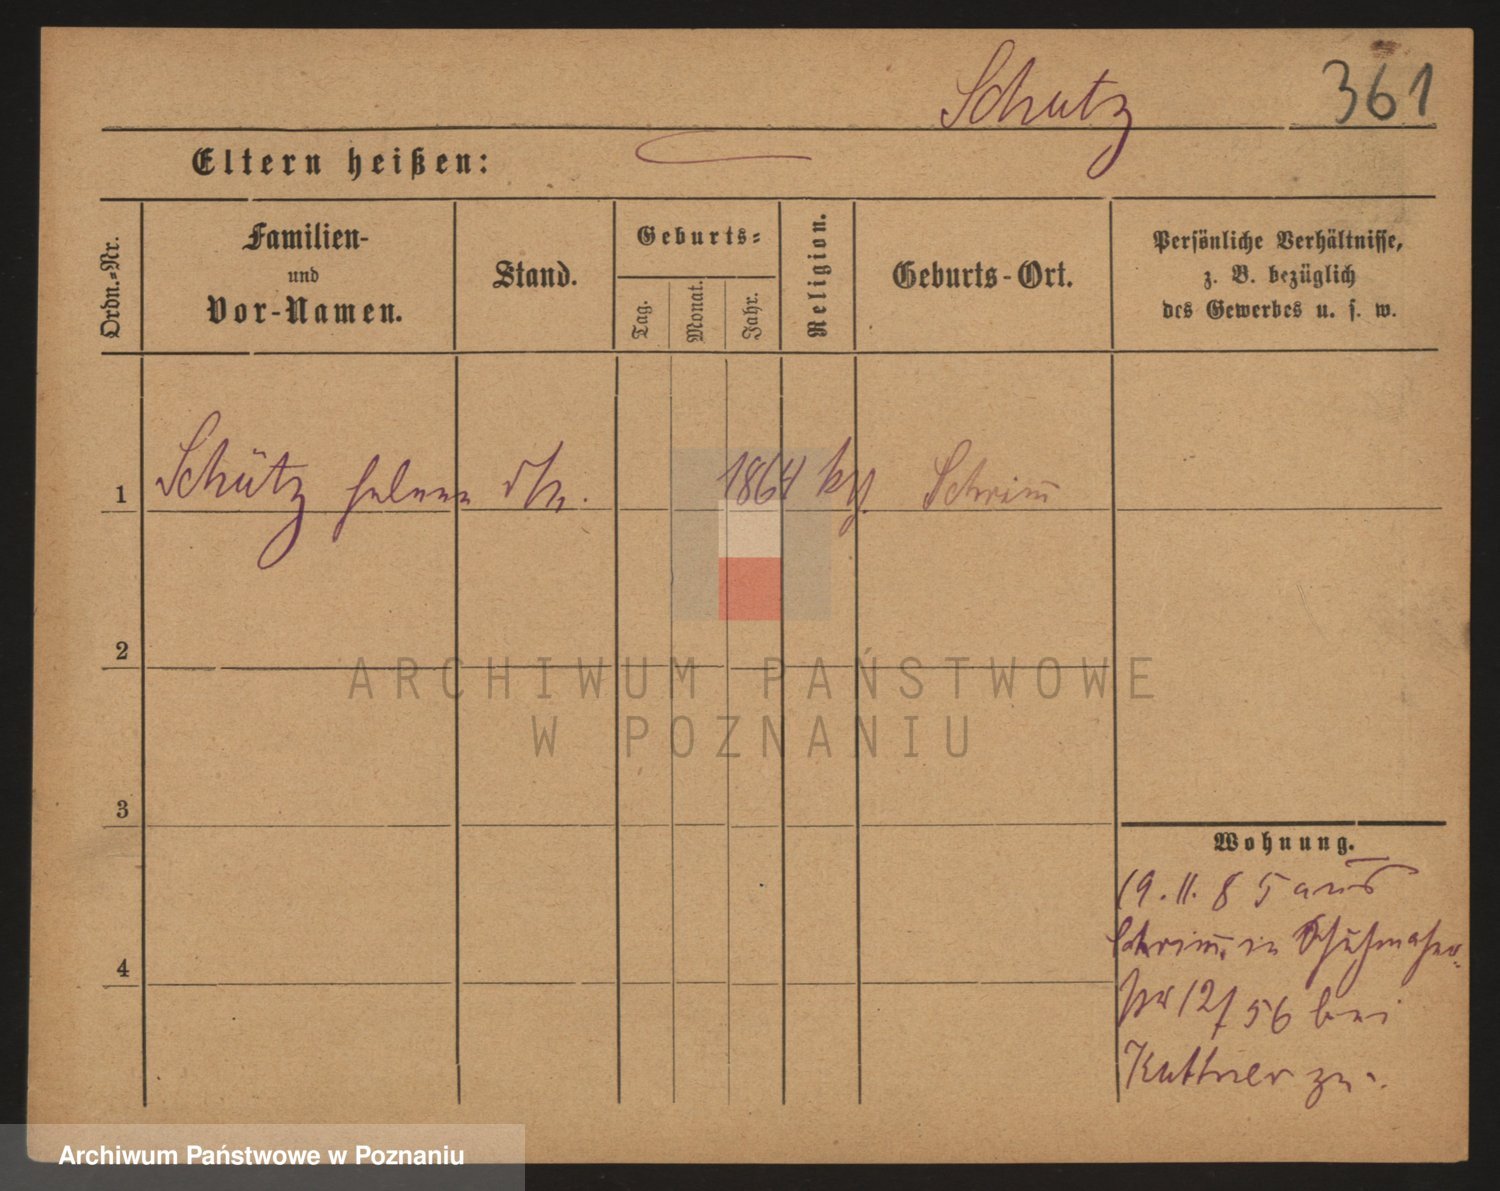 Schutz 361
Eltern heißen:
Ordn.-Nr.
Familien-
und
Vor-Namen.
Stand.
Geburts-
Tag.
Monat.
Jahr.
Religion.
Geburts-Ort.
Persönliche Verhältnisse,
z. B. bezüglich
des Gewerbes u. s. w.
1 Schütz Helene 1864 Schrimm
2
3
4
Wohnung.
19.11.85 aus
Schrimm, in Schuhmacher-
str 12/56 bei
Kuttner zu.
ARCHIWUM PAŃSTWOWE
W POZNANIU
Archiwum Państwowe w Poznaniu